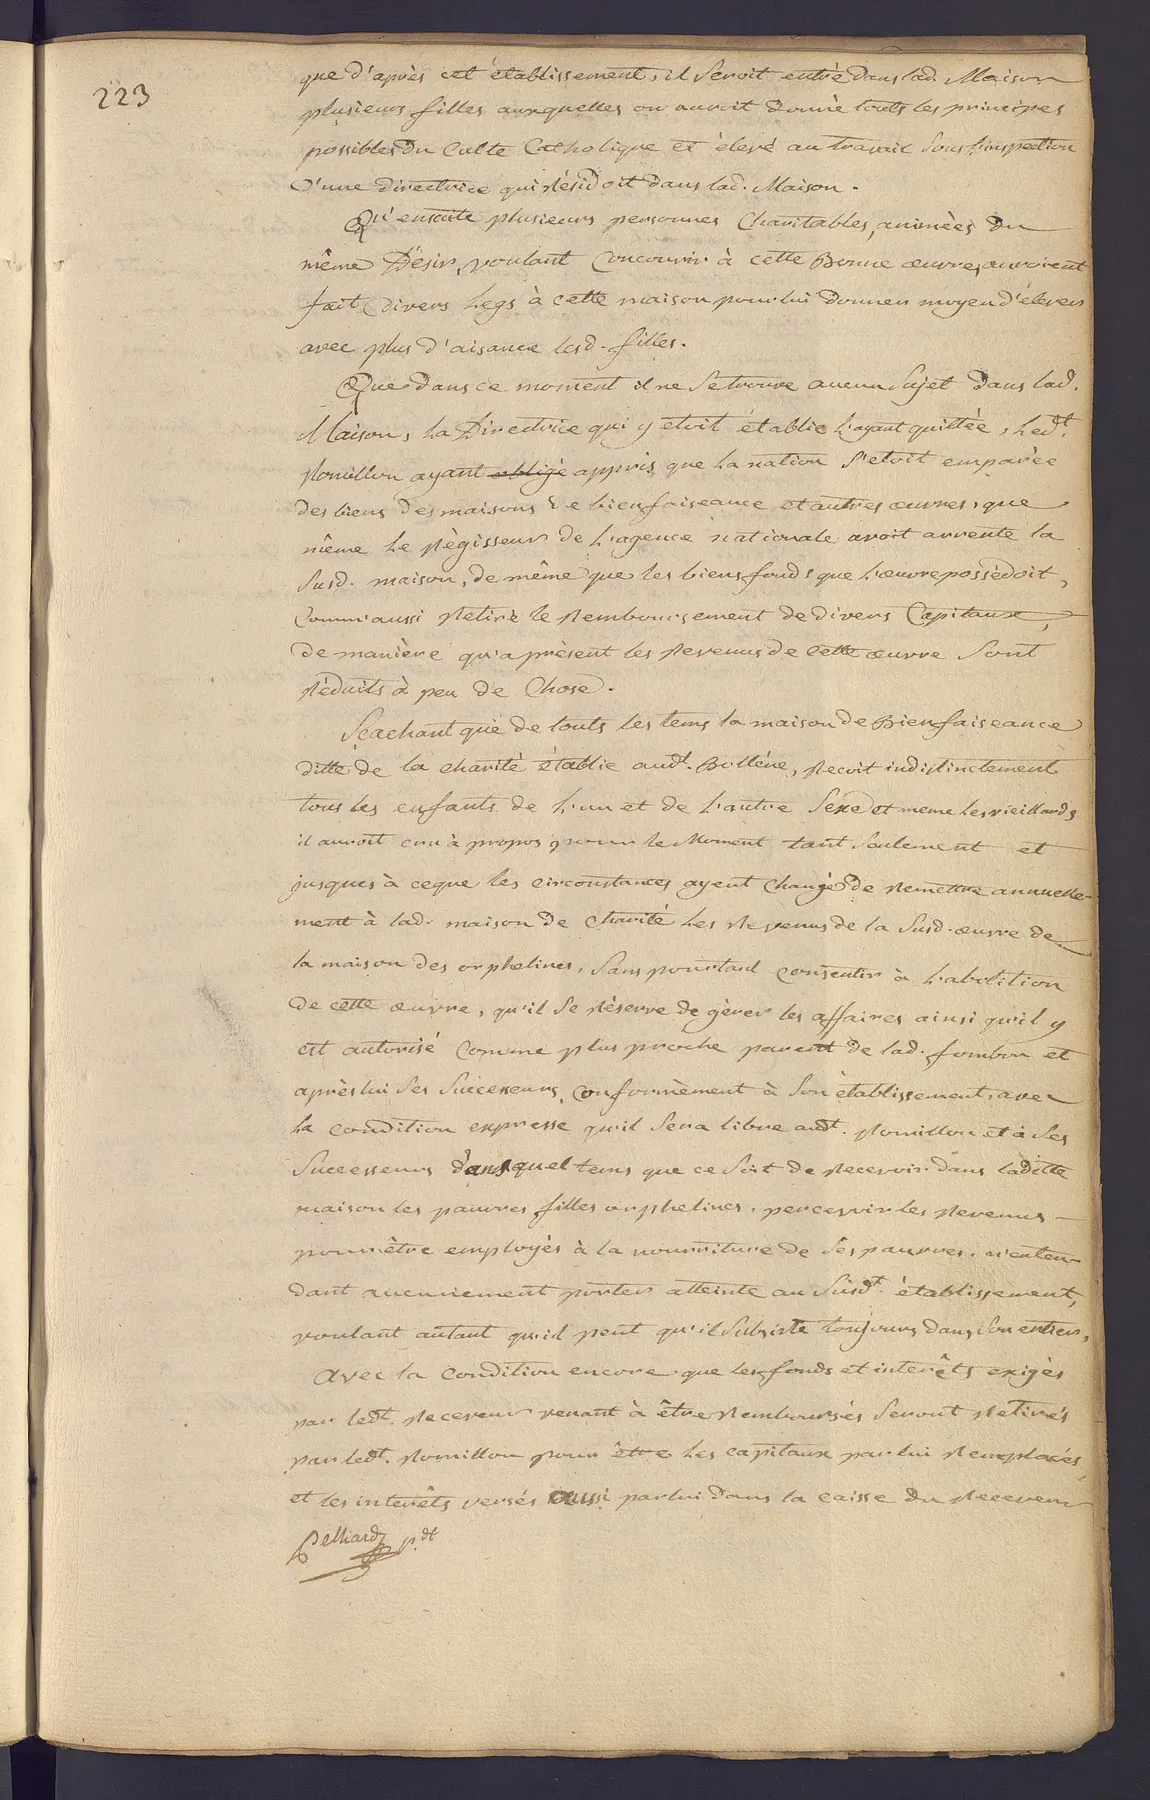 223
que d'après cet établissement, il seroit entré dans lad. Maison
plusieurs filles auxquelles on auroit donné touts les principes
possibles du Culte Catholique et élevé au travail sous l'inspection
d'une directrice qui résidoit dans lad. Maison.
Qu'ensuite plusieurs personnes Charitables, animées du
même Désir, voulant Concourir à cette Bonne œuvre, auroient
fait divers Legs à cette maison pour lui donner moyen d'élever
avec plus d'aisance lesd. filles.
Que dans ce moment il ne se trouve aucun sujet dans lad.
Maison, la Directrice qui y etoit établie l'ayant quittée, Ledt.
Romillon ayant obligé appris que la nation s'etoit emparée
des biens des maisons de bienfaiseance et autres œuvres, que
même le Régisseur de l'agence nationale avoit arrenté la
susd. maison, de même que les biensfonds que l'œuvre possédoit,
Comm'aussi Retiré le Remboursement de divers Capitaux,
de manière qu'a présent les Revenus de cette œuvre sont
Réduits à peu de Chose.
Scachant que de touts les tems la maison de Bienfaiseance
ditte de la charité établie audt. Bolléne, Recoit indistinctement
tous les enfants de l'un et de l'autre sexe et meme les vieillards
il auroit cru à propos pour le Moment tant seulement et
jusques à ceque les circonstances ayent changé de Remettre annuelle-
ment à lad. maison de Charité les Revenus de la susd. œuvre de
la maison des orphelines, sans pourtant consentir à l'abolition
de cette œuvre, qu'il se Réserve de gèrer les affaires ainsi qu'il y
est autorisé comme plus proche parent de lad. fombon et
après lui ses successeurs, conformément à son établissement, avec
la condition expresse qu'il sera libre audt. Romillon et à ses
successeurs dans quel tems que ce soit de Recevoir dans laditte
maison les pauvres filles orphelines, percevoir les Revenus
pour être employés à la nourriture de ses pauvres, n'enten-
dant aucunement porter atteinte au susdt. établissement,
voulant autant qu'il peut qu'il subsiste toujours dans son entier,
Avec la Condition encore que les fonds et interêts exigés
par ledt. Receveur venant à être Remboursés seront Retirés
par ledt. Romillon pour être les capitaux par lui Remplacés,
et les interêts versés aussi par lui dans la caisse du Receveur
Pelliard pdt